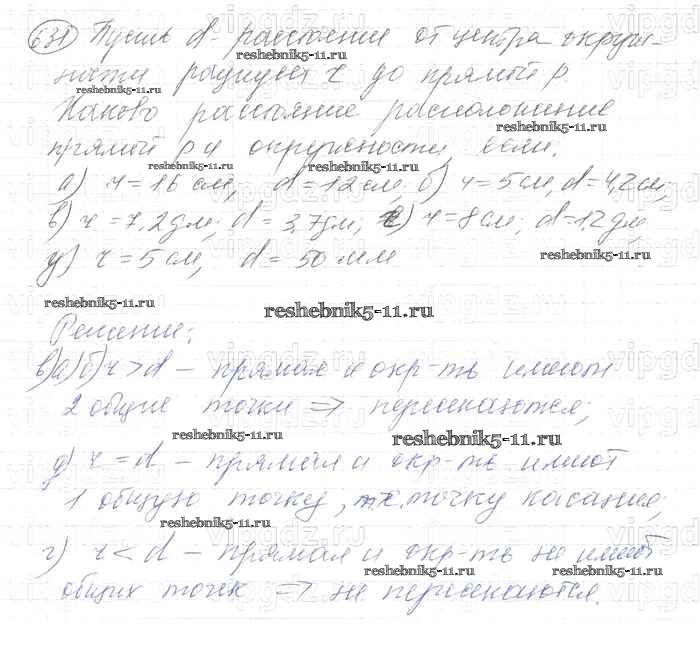 631) Пусть d - расстояние от центра окруж-
ности радиуса r до прямой p.
Каково расстояние расположение
прямой p и окружности, если:
а) r = 16 см, d = 12 см; б) r = 5 см, d = 4,2 см,
в) r = 7,2 дм; d = 3,7 дм; г) r = 8 см; d = 1,2 дм,
д) r = 5 см, d = 50 мм
Решение:
в) а) б) r > d - прямая и окр-ть имеют
2 общие точки => пересекаются;
д) r = d - прямая и окр-ть имеют
1 общую точку, т.к. точку касания;
г) r < d - прямая и окр-ть не имеют
общих точек => не пересекаются.
reshebnik5-11.ru
reshebnik5-11.ru
reshebnik5-11.ru
reshebnik5-11.ru
reshebnik5-11.ru
reshebnik5-11.ru
reshebnik5-11.ru
reshebnik5-11.ru
reshebnik5-11.ru
reshebnik5-11.ru
reshebnik5-11.ru
reshebnik5-11.ru
reshebnik5-11.ru
vipgdz.ru